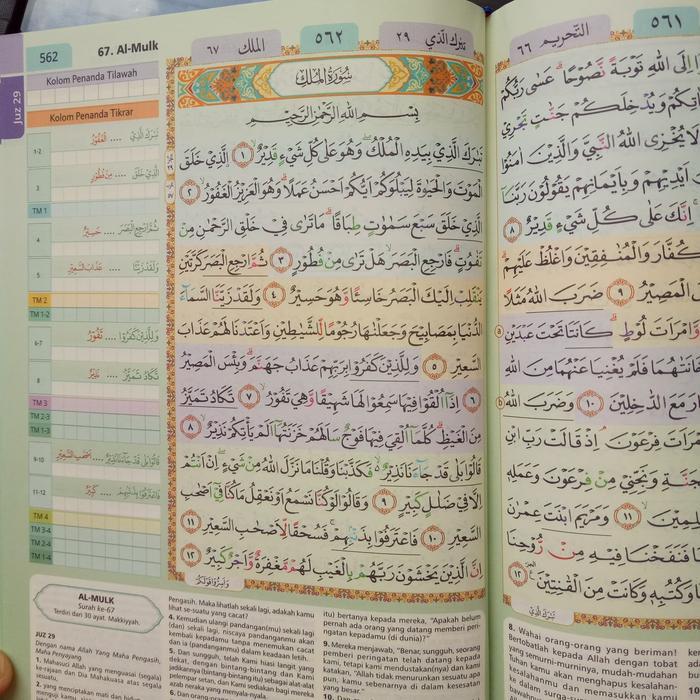 562
67. Al-Mulk
Juz 29
٦٧ الملك
٥٦٢
تبرك الذي ٢٩
Kolom Penanda Tilawah
Kolom Penanda Tikrar
1-2
تَبٰرَكَ الَّذِيْ .... الْغَفُوْرُ
3
الَّذِيْ خَلَقَ .... مِنْ فُطُوْرٍ
TM 1
4
ثُمَّ ارْجِعِ الْبَصَرَ .... حَسِيْرٌ
5
وَلَقَدْ زَيَّنَّا .... عَذَابَ السَّعِيْرِ
TM 2
TM 1-2
6-7
وَلِلَّذِيْنَ كَفَرُوْا .... تَفُوْرُ
8
تَكَادُ تَمَيَّزُ .... نَذِيْرٌ
TM 3
TM 2-3
TM 1-3
9-10
قَالُوْا بَلٰى قَدْ جَاۤءَنَا نَذِيْرٌ .... اَصْحٰبِ السَّعِيْرِ
11-12
فَاعْتَرَفُوْا بِذَنْۢبِهِمْ .... كَبِيْرٌ
TM 4
TM 3-4
TM 2-4
TM 1-4
سُوْرَةُ الْمُلْكِ
بِسْمِ اللّٰهِ الرَّحْمٰنِ الرَّحِيْمِ
تَبٰرَكَ الَّذِيْ بِيَدِهِ الْمُلْكُۖ وَهُوَ عَلٰى كُلِّ شَيْءٍ قَدِيْرٌۙ ١ الَّذِيْ خَلَقَ
الْمَوْتَ وَالْحَيٰوةَ لِيَبْلُوَكُمْ اَيُّكُمْ اَحْسَنُ عَمَلًاۗ وَهُوَ الْعَزِيْزُ الْغَفُوْرُۙ ٢
الَّذِيْ خَلَقَ سَبْعَ سَمٰوٰتٍ طِبَاقًاۗ مَا تَرٰى فِيْ خَلْقِ الرَّحْمٰنِ مِنْ
تَفٰوُتٍۗ فَارْجِعِ الْبَصَرَۙ هَلْ تَرٰى مِنْ فُطُوْرٍ ٣ ثُمَّ ارْجِعِ الْبَصَرَ كَرَّتَيْنِ
يَنْقَلِبْ اِلَيْكَ الْبَصَرُ خَاسِئًا وَّهُوَ حَسِيْرٌ ٤ وَلَقَدْ زَيَّنَّا السَّمَاۤءَ
الدُّنْيَا بِمَصَابِيْحَ وَجَعَلْنٰهَا رُجُوْمًا لِّلشَّيٰطِيْنِ وَاَعْتَدْنَا لَهُمْ عَذَابَ
السَّعِيْرِ ٥ وَلِلَّذِيْنَ كَفَرُوْا بِرَبِّهِمْ عَذَابُ جَهَنَّمَۗ وَبِئْسَ الْمَصِيْرُ
٦ اِذَآ اُلْقُوْا فِيْهَا سَمِعُوْا لَهَا شَهِيْقًا وَّهِيَ تَفُوْرُۙ ٧ تَكَادُ تَمَيَّزُ
مِنَ الْغَيْظِۗ كُلَّمَآ اُلْقِيَ فِيْهَا فَوْجٌ سَاَلَهُمْ خَزَنَتُهَآ اَلَمْ يَأْتِكُمْ نَذِيْرٌ ٨
قَالُوْا بَلٰى قَدْ جَاۤءَنَا نَذِيْرٌ ەۙ فَكَذَّبْنَا وَقُلْنَا مَا نَزَّلَ اللّٰهُ مِنْ شَيْءٍۖ اِنْ اَنْتُمْ
اِلَّا فِيْ ضَلٰلٍ كَبِيْرٍ ٩ وَقَالُوْا لَوْ كُنَّا نَسْمَعُ اَوْ نَعْقِلُ مَا كُنَّا فِيْٓ اَصْحٰبِ
السَّعِيْرِ ١٠ فَاعْتَرَفُوْا بِذَنْۢبِهِمْۚ فَسُحْقًا لِّاَصْحٰبِ السَّعِيْرِ ١١
اِنَّ الَّذِيْنَ يَخْشَوْنَ رَبَّهُمْ بِالْغَيْبِ لَهُمْ مَّغْفِرَةٌ وَّاَجْرٌ كَبِيْرٌ ١٢
وَاَسِرُّوْا قَوْلَكُمْ
AL-MULK
Surah ke-67
Terdiri dari 30 ayat. Makkiyyah.
JUZ 29
Dengan nama Allah Yang Maha Pengasih,
Maha Penyayang
1. Mahasuci Allah yang menguasai (segala)
ke-rajaan dan Dia Mahakuasa atas segala
sesuatu,
2. yang menciptakan mati dan hidup
Pengasih. Maka lihatlah sekali lagi, adakah kamu
lihat se-suatu yang cacat?
4. Kemudian ulangi pandangan(mu) sekali lagi
(dan) sekali lagi, niscaya pandanganmu akan
kembali kepadamu tanpa menemukan cacat
dan ia (pandanganmu) dalam keadaan letih.
5. Dan sungguh, telah Kami hiasi langit yang
dekat, dengan bintang-bintang dan Kami
jadikannya (bintang-bintang itu) sebagai alat-alat
pelempar setan, dan Kami sediakan bagi mereka
azab neraka yang menyala-nyala.
6. Dan orang-orang
itu) bertanya kepada mereka, "Apakah belum
pernah ada orang yang datang memberi peri-
ngatan kepadamu (di dunia)?"
9. Mereka menjawab, "Benar, sungguh, seorang
pemberi peringatan telah datang kepada
kami, tetapi kami mendustakan(nya) dan kami
katakan, "Allah tidak menurunkan sesuatu apa
pun, kamu sebenarnya di dalam kesesatan
yang besar."
10. Dan
٦٦ التحريم
٥٦١
اِلَى اللّٰهِ تَوْبَةً نَّصُوْحًاۗ عَسٰى رَبُّكُمْ
وَيُدْخِلَكُمْ جَنّٰتٍ تَجْرِيْ
لَا يُخْزِى اللّٰهُ النَّبِيَّ وَالَّذِيْنَ اٰمَنُوْا
اَيْدِيْهِمْ وَبِاَيْمَانِهِمْ يَقُوْلُوْنَ رَبَّنَآ
اِنَّكَ عَلٰى كُلِّ شَيْءٍ قَدِيْرٌ ٨
وَالْمُنٰفِقِيْنَ وَاغْلُظْ عَلَيْهِمْۗ
الْمَصِيْرُ ٩ ضَرَبَ اللّٰهُ مَثَلًا
وَّامْرَاَتَ لُوْطٍۗ كَانَتَا تَحْتَ عَبْدَيْنِ
فَلَمْ يُغْنِيَا عَنْهُمَا مِنَ اللّٰهِ
مَعَ الدّٰخِلِيْنَ ١٠ وَضَرَبَ اللّٰهُ
فِرْعَوْنَۘ اِذْ قَالَتْ رَبِّ ابْنِ
وَنَجِّنِيْ مِنْ فِرْعَوْنَ وَعَمَلِهٖ
١١ وَمَرْيَمَ ابْنَتَ عِمْرٰنَ
فَنَفَخْنَا فِيْهِ مِنْ رُّوْحِنَا
وَكُتُبِهٖ وَكَانَتْ مِنَ الْقٰنِتِيْنَ ١٢
تَبٰرَكَ الَّذِيْ
8. Wahai orang-orang yang beriman!
Bertobatlah kepada Allah dengan tobat
yang semurni-murninya, mudah-mudahan
Tuhan kamu akan menghapus kesalahan-
kesalahanmu dan memasukkan